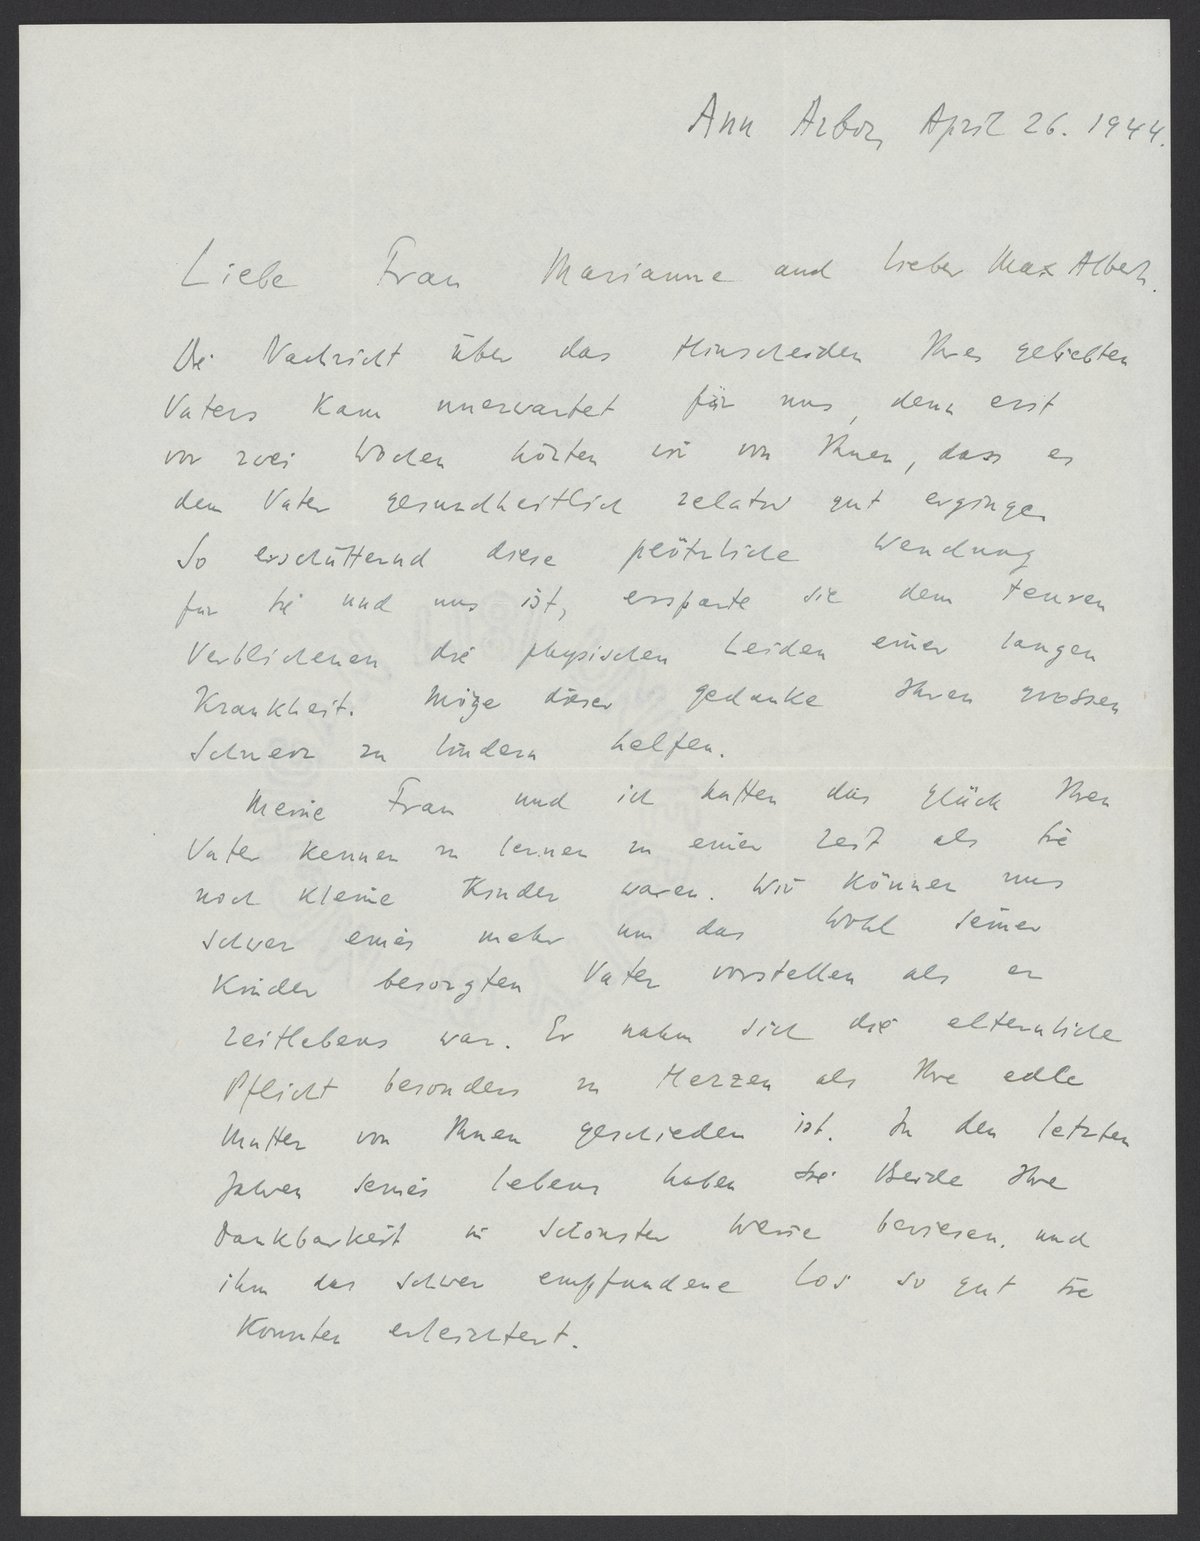 Ann Arbor, April 26. 1944.
Liebe Frau Marianne und lieber Max Albert.
Die Nachricht über das Hinscheiden Ihres geliebten
Vaters kam unerwartet für uns, denn erst
vor zwei Wochen hörten wir von Ihnen, dass es
dem Vater gesundheitlich relativ gut erginge.
So erschütternd diese plötzliche Wendung
für Sie und uns ist, ersparte sie dem teuren
Verblichenen die physischen Leiden einer langen
Krankheit. Möge dieser gedanke Ihren grossen
Schmerz zu lindern helfen.
Meine Frau und ich hatten das glück Ihren
Vater kennen zu lernen zu einer Zeit als Sie
noch kleine Kinder waren. Wir können uns
schwer einen mehr um das Wohl seiner
Kinder besorgten Vater vorstellen als er
zeitlebens war. Er nahm sich die elternliche
Pflicht besonders zu Herzen als Ihre edle
Mutter von Ihnen geschieden ist. In den letzten
Jahren seines Lebens haben Sie Beide Ihre
Dankbarkeit in schönster Weise bewiesen, und
ihm das schwer empfundene Los so gut Sie
konnten erleichtert.